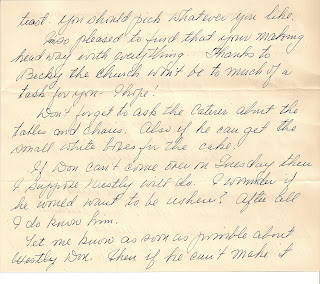 toast. You should pick whatever you like.
I'm so pleased to find that your making
headway with everything. Thanks to
Becky the church won't be to much of a
task for you - I hope!
Don't forget to ask the caterer about the
tables and chairs. Also if he can get the
small white boxes for the cake.
If Don can't come over on Tuesday then
I suppose Westly will do. I wonder if
he would want to be usher? After all
I do know him.
Let me know as soon as possible about
Westly Don. Then if he can't make it